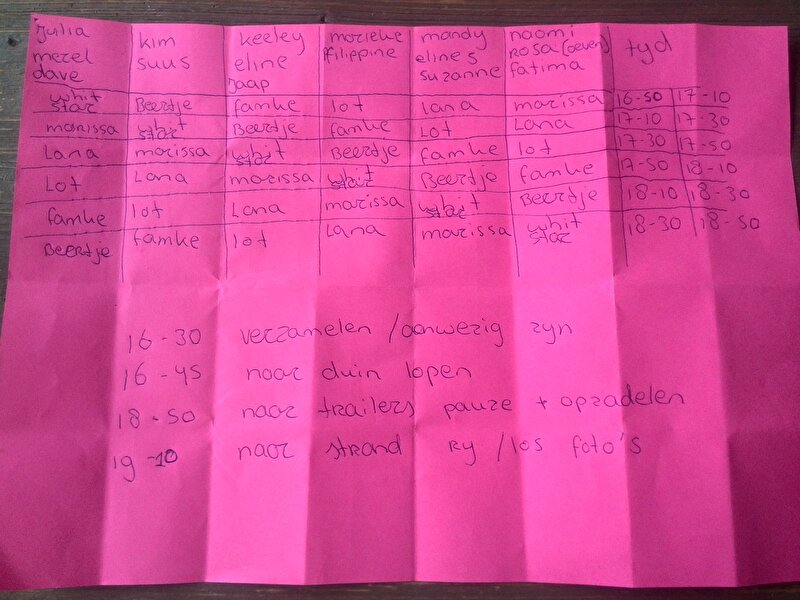 julia kim keeley marieke mandy naomi tyd
merel suus eline filippine eline s rosa (oeven)
dave jaap suzanne fatima
whit star Beertje famke lot lana marissa 16-50 17-10
marissa whit star Beertje famke Lot Lana 17-10 17-30
Lana marissa whit star Beertje famke lot 17-30 17-50
Lot Lana marissa whit star Beertje famke 17-50 18-10
famke lot Lana marissa whit star Beertje 18-10 18-30
Beertje famke lot Lana marissa whit star 18-30 18-50
16-30 verzamelen /aanwezig zyn
16-45 naar duin lopen
18-50 naar trailers pauze + opzadelen
19-10 naar strand ry /los foto's